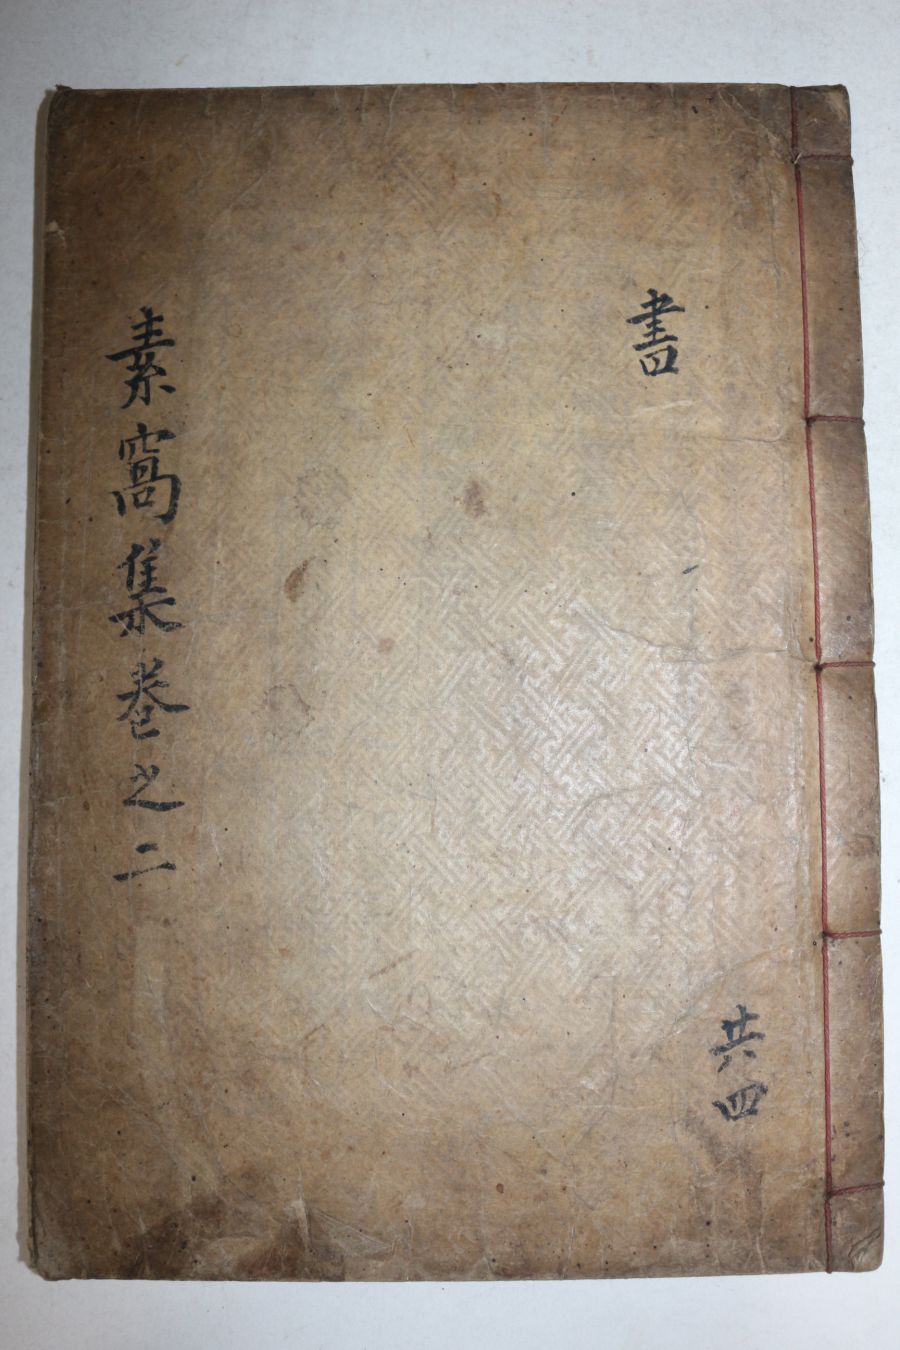 書
共四
素窩集卷之二